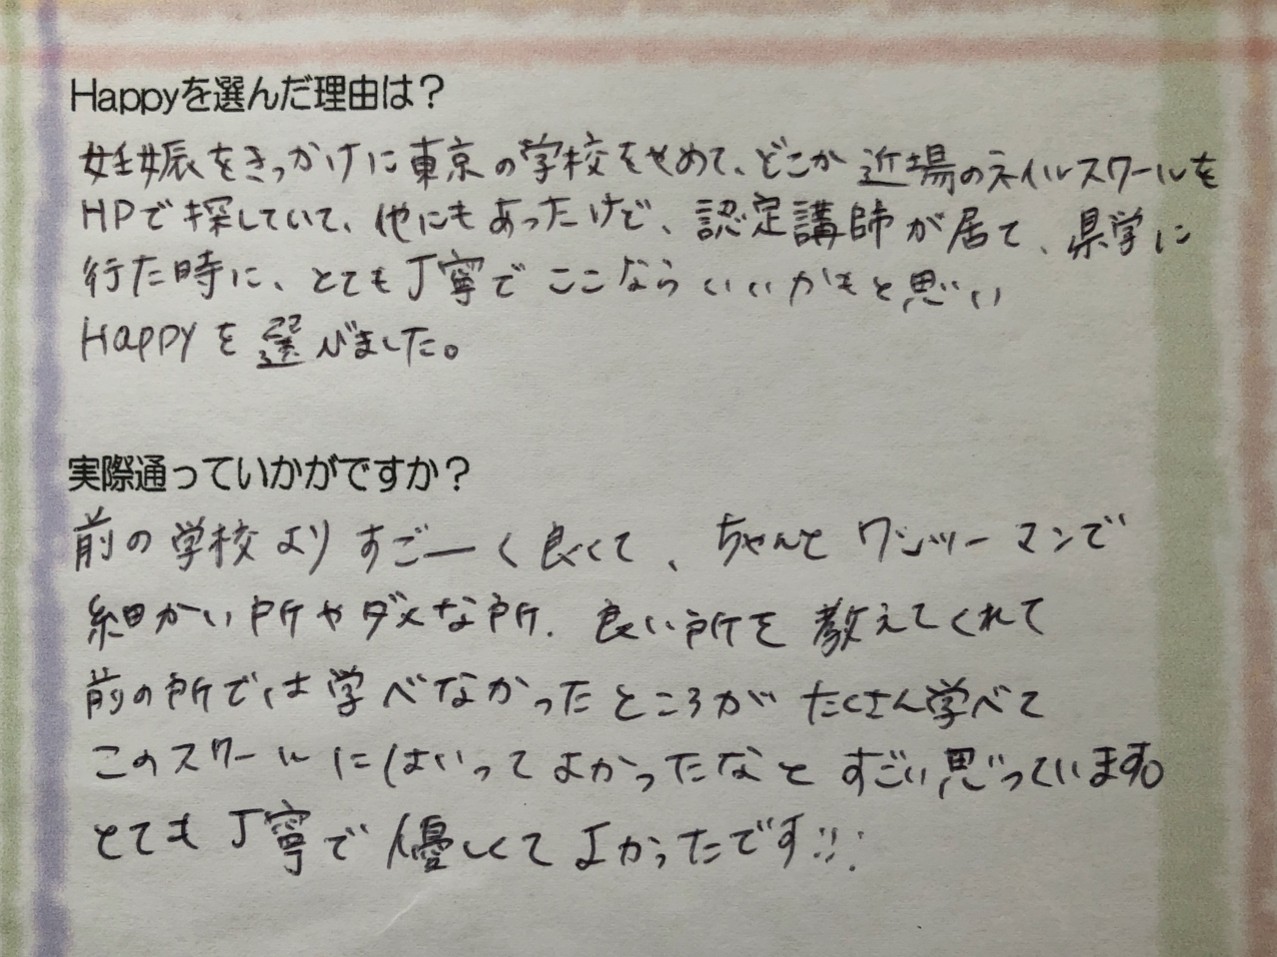 Happyを選んだ理由は？
妊娠をきっかけに東京の学校をやめて、どこか近場のネイルスクールを
HPで探していて、他にもあったけど、認定講師が居て、県学に
行た時に、とても丁寧でここならいいかもと思い
Happyを選びました。
実際通っていかがですか？
前の学校よりすごーく良くて、ちゃんとワンツーマンで
細かい所やダメな所、良い所を教えてくれて
前の所では学べなかったところがたくさん学べて
このスクールにはいってよかったなとすごい思っています。
とても丁寧で優しくてよかったです!!